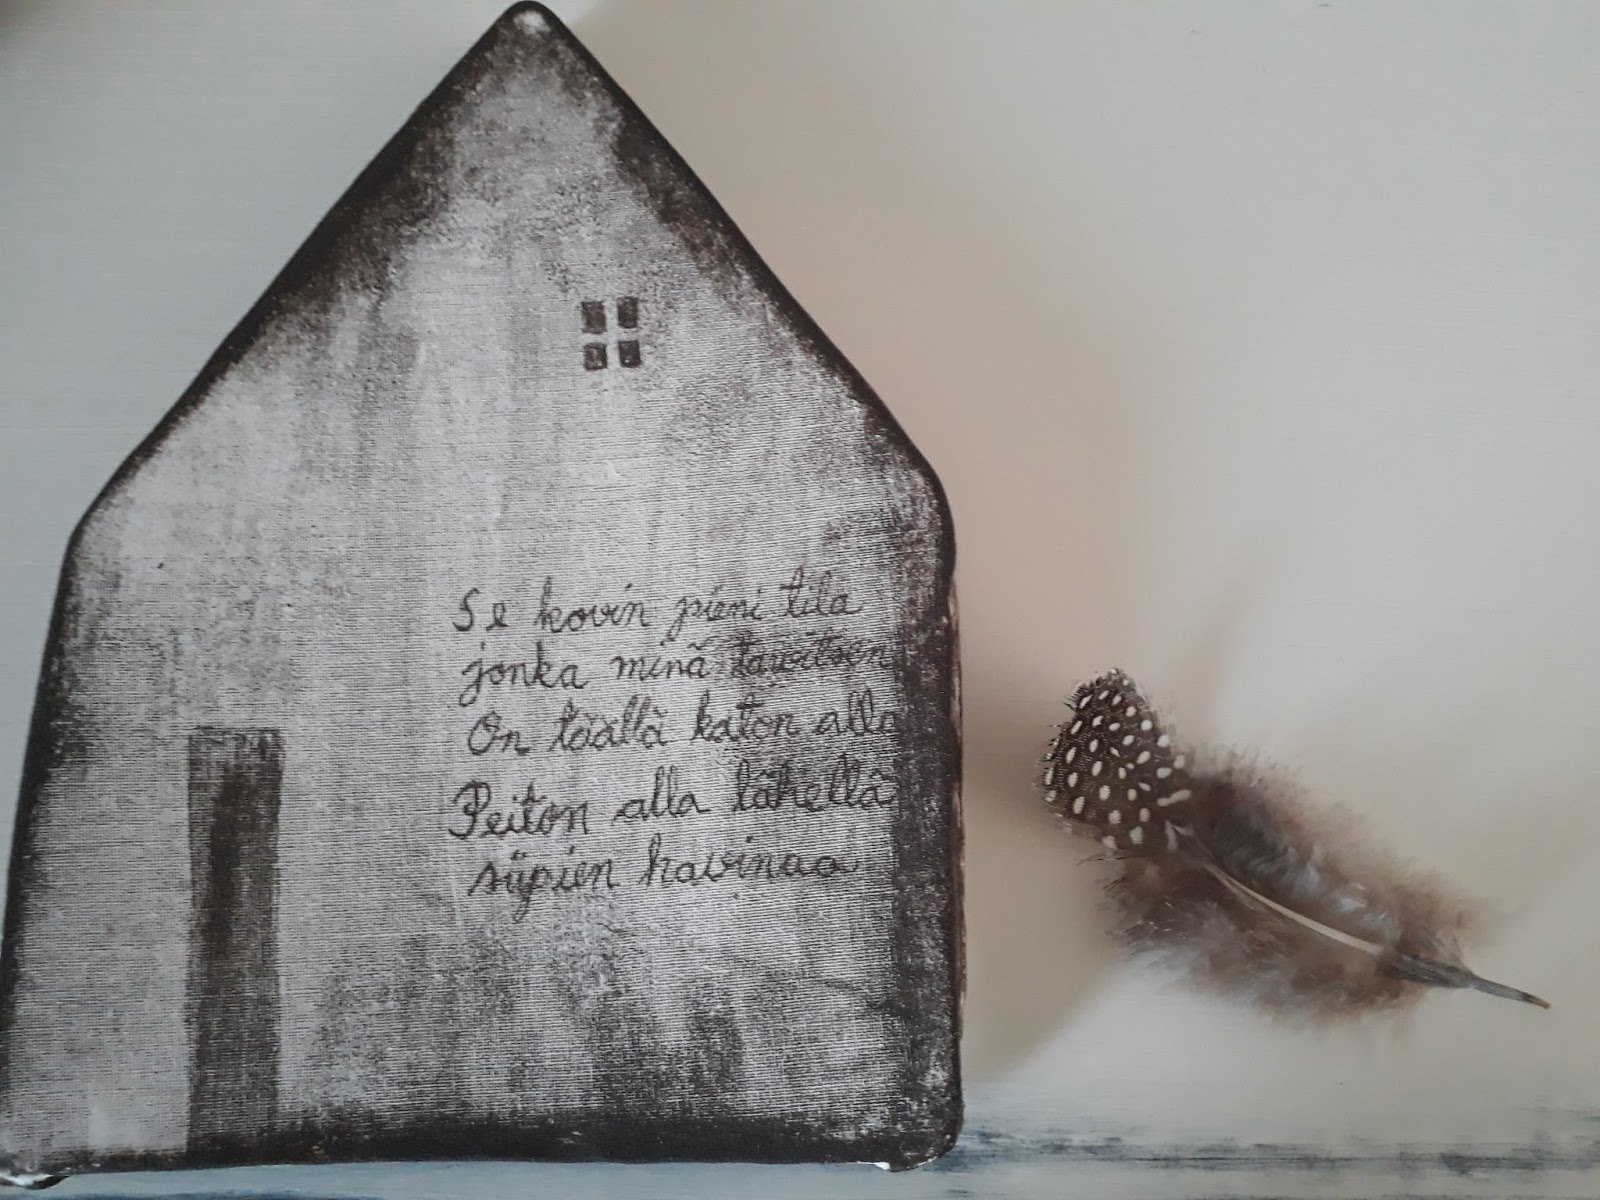 Se kovin pieni tila
jonka minä tarvitsen
On täällä katon alla
Peiton alla lähellä
siipien havinaa